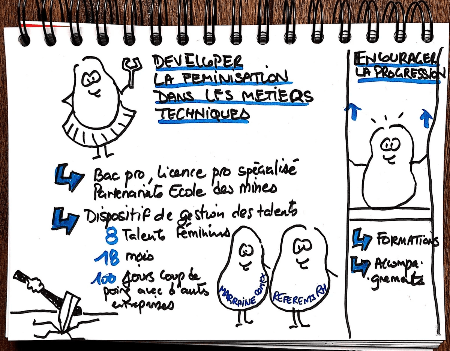 DEVELOPER
LA FEMINISATION
DANS LES METIERS
TECHNIQUES
Bac pro, Licence pro spécialisé
Partenariats Ecole des mines
Dispositif de gestion des talents
8 Talents Féminins
18 mois
100 Jours coup de
poing avec d'autres
entreprises
MARRAINE
REFERENT RH
ENCOURAGER
LA PROGRESSION
FORMATIONS
Accompa-
gnements